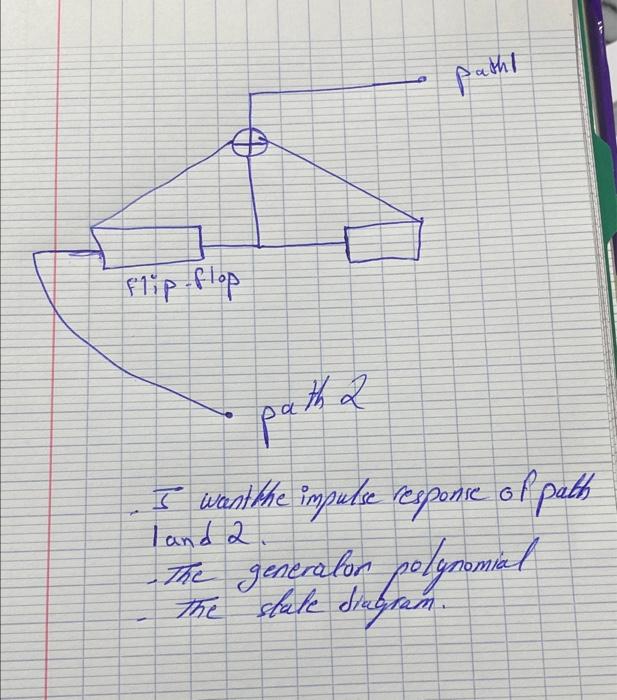 path1
flip-flop
path 2
. I want the impulse response of path
1 and 2.
- The generator polynomial
- The state diagram.